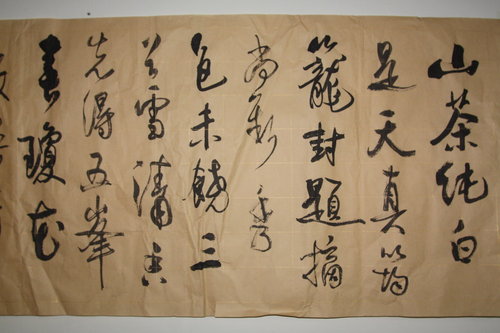 山茶純白
是天真筠
籠封題摘
尚新秀
色未饒三
谷雪清香
先得五峯
春瓊花